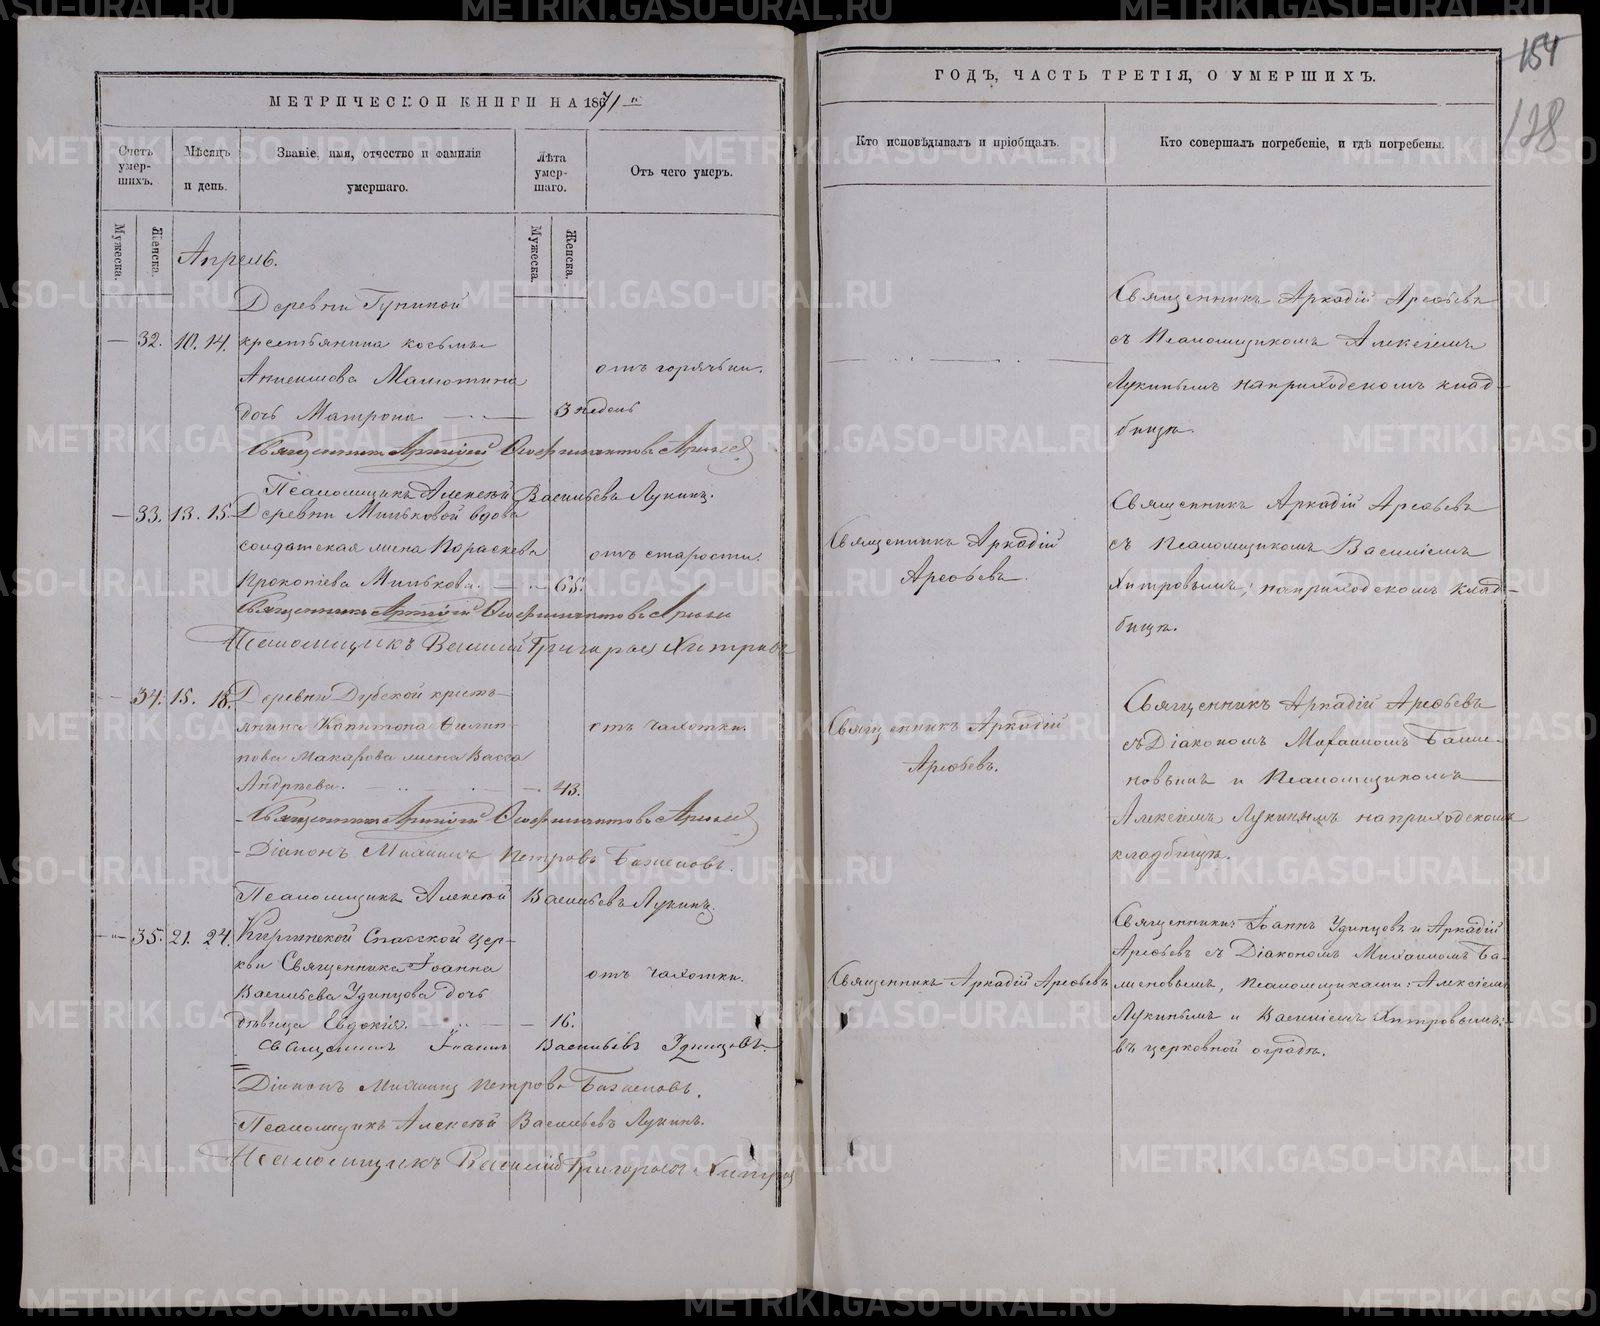 МЕТРИЧЕСКОЙ КНИГИ НА 1871 й
Счетъ умер-шихъ.
Мѣсяцъ и день.
Званіе, имя, отчество и фамилія умершаго.
Лѣта умер-шаго.
Отъ чего умеръ.
Мужеска. Женска.
Мужеска. Женска.
Апрель.
Деревни Гуниной
— 32. 10. 14. крестьянина косьмы
отъ горячьки.
дочь Матрона 3 недель
Священникъ Аркадій Арефьев
Псаломщикъ Алексѣй Васильевъ Лукинъ.
— 33. 13. 15. Деревни Миньковой вдова
солдатская жена Параскева отъ старости.
Прокопіева Минькова. 65.
Священникъ Аркадій
Псаломщикъ Василій Григорьев Хитровъ
— 34. 15. 18. Деревни Дубской кресть-
янина Капитона Филип- отъ чахотки.
пова Макарова жена Васса
Андрѣева. 43.
Священникъ Аркадій
Діаконъ Михаилъ Петровъ Баженовъ.
Псаломщикъ Алексѣй Васильевъ Лукинъ.
— 35. 21. 24. Киргинской Спасской цер-
кви Священника Іоанна отъ чахотки.
Васильева Удинцова дочь
дѣвица Евдокія. 16.
Священникъ Іоаннъ Васильевъ Удинцовъ.
Діаконъ Михаилъ Петровъ Баженовъ.
Псаломщикъ Алексѣй Васильевъ Лукинъ.
Псаломщикъ Василій Григорьев Хитров
154
128
ГОДЪ, ЧАСТЬ ТРЕТІЯ, О УМЕРШИХЪ.
Кто исповѣдывалъ и пріобщалъ.
Кто совершалъ погребеніе, и гдѣ погребены.
Священникъ Аркадій Арефьевъ
съ Псаломщикомъ Алексіемъ
Лукинымъ на приходскомъ клад-
бищѣ.
Священникъ Аркадій
Арефьевъ.
Священникъ Аркадій Арефьевъ
съ Псаломщикомъ Василіемъ
Хитровымъ, на приходскомъ клад-
бищѣ.
Священникъ Аркадій
Арефьевъ.
Священникъ Аркадій Арефьевъ
съ Діакономъ Михаиломъ Баже-
новымъ и Псаломщикомъ
Алексіемъ Лукинымъ на приходскомъ
кладбищѣ.
Священникъ Аркадій Арефьевъ
Священники: Іоаннъ Удинцовъ и Аркадій
Арефьевъ съ Діакономъ Михаиломъ Ба-
женовымъ, Псаломщиками: Алексіемъ
Лукинымъ и Василіемъ Хитровымъ,
въ церковной оградѣ.
METRIKI.GASO-URAL.RU